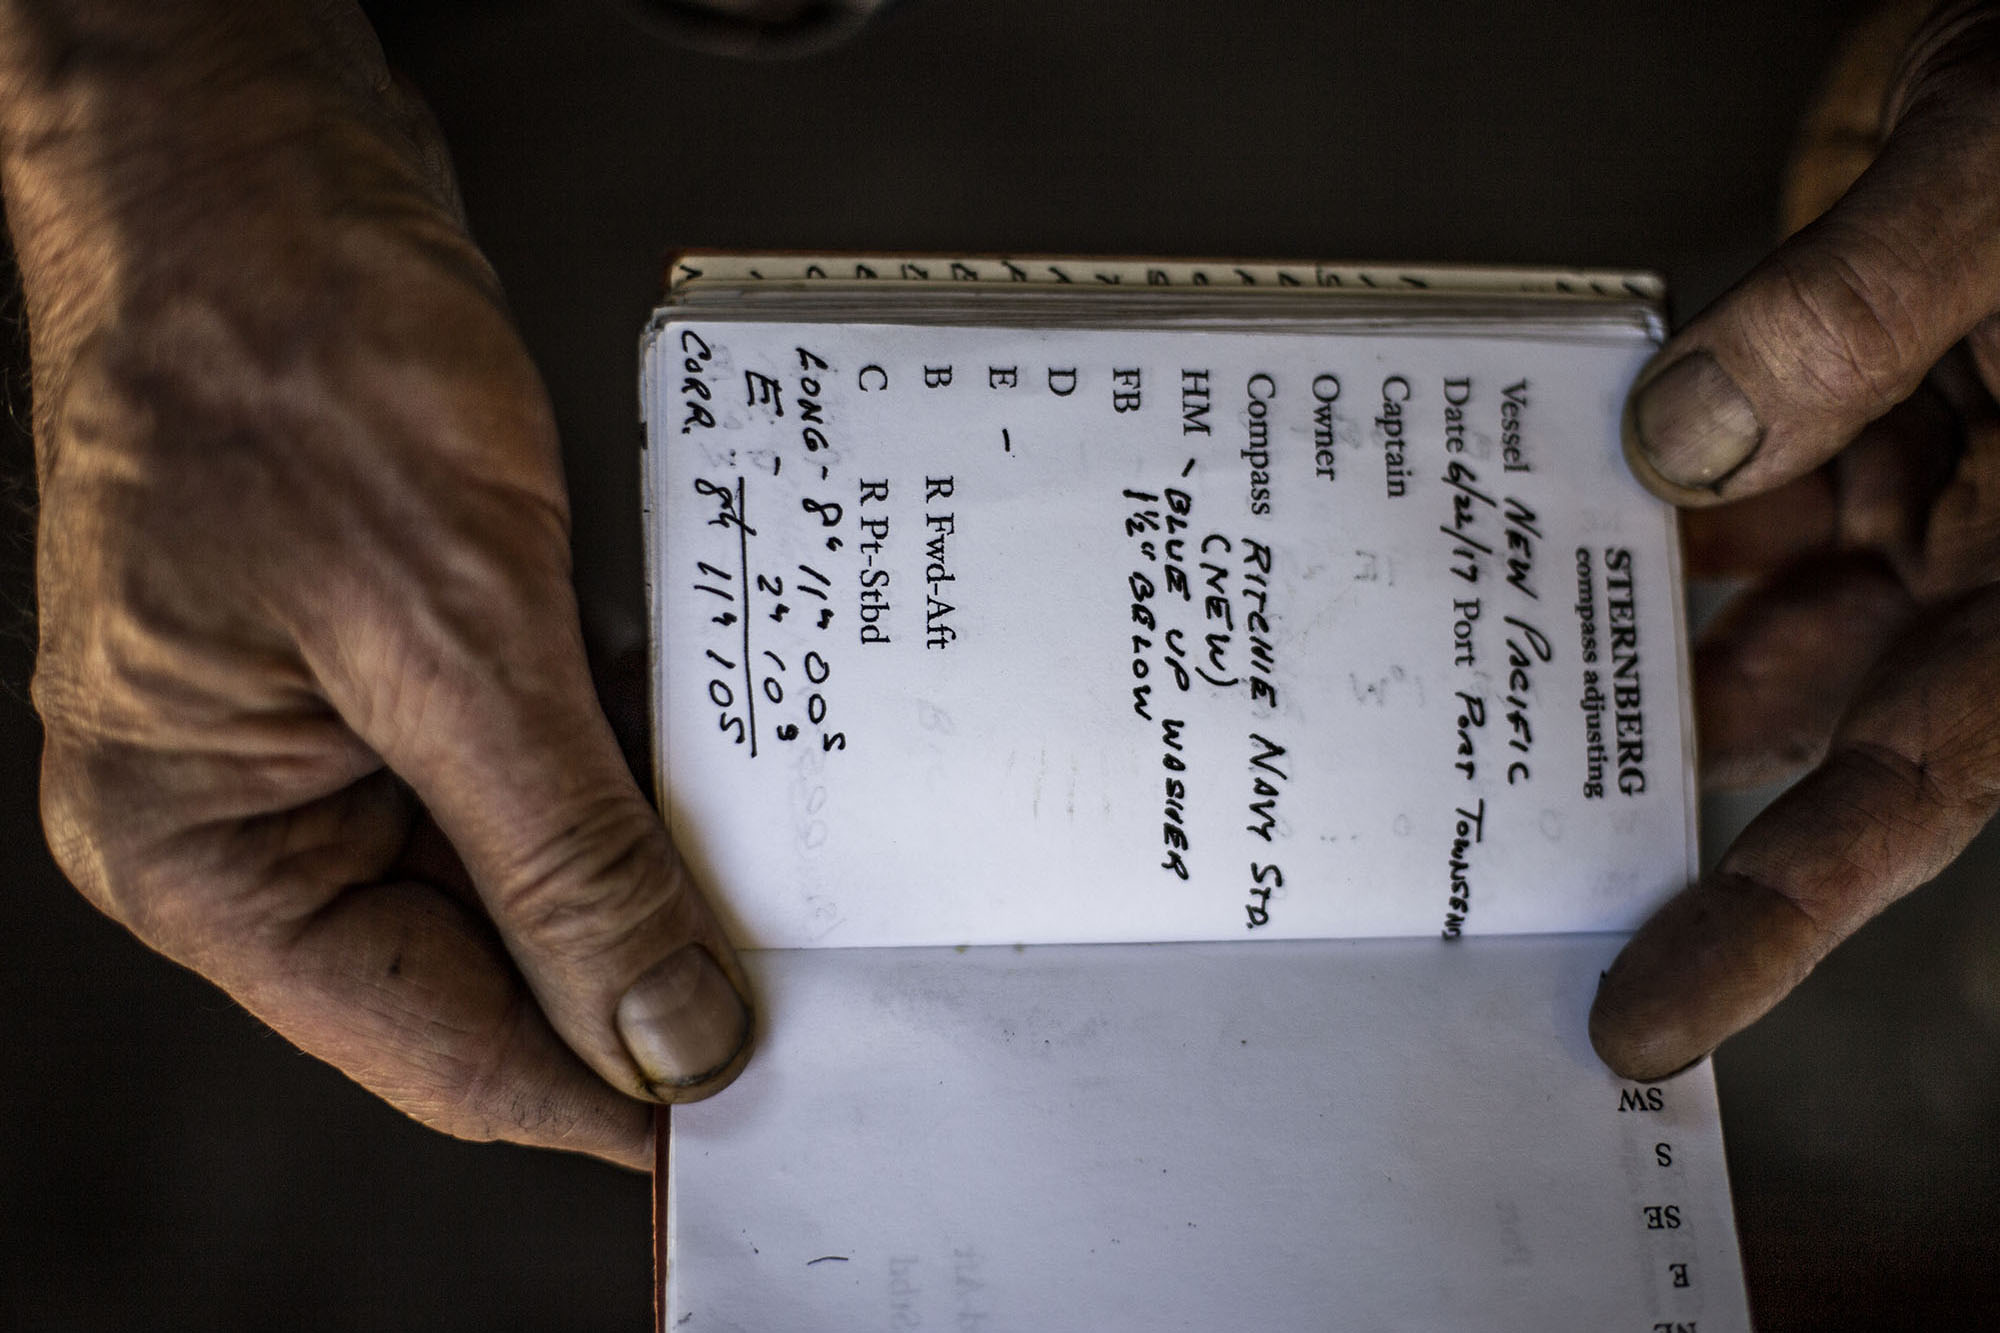 STERNBERG
compass adjusting
Vessel NEW PACIFIC
Date 6/22/17 Port PORT TOWNSEND
Captain
Owner
Compass RITCHIE NAVY STD.
(NEW)
HM - BLUE UP WASHER
FB 1½" BELOW
D
E -
B R Fwd-Aft
C R Pt-Stbd
LONG - 8h 11m 00s
E -
CORR.
SW
S
SE
E
NE